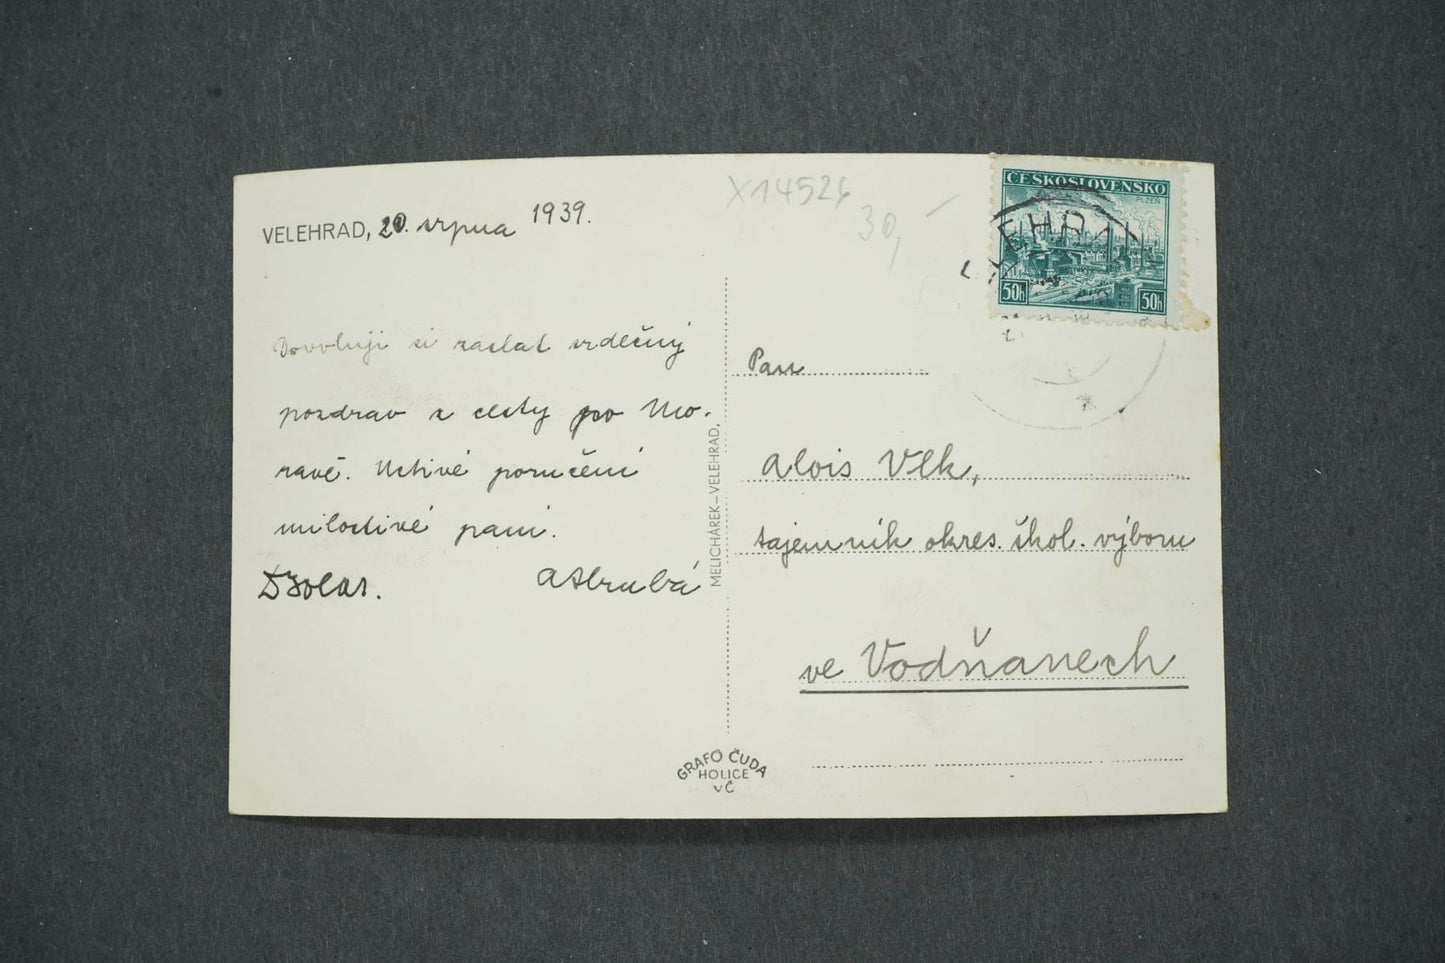 VELEHRAD, 20. srpna 1939.
Dovoluji si zaslat srdečný
pozdrav z cesty po Mo-
ravě. Uctivé poručení
milostivé paní.
AHrubá
MELICHÁREK–VELEHRAD,
GRAFO ČUDA
HOLICE
VČ
X14526
30,
ČESKOSLOVENSKO
PLZEŇ
50h 50h
Pan
Alois Vlk,
tajemník okres. škol. výboru
ve Vodňanech